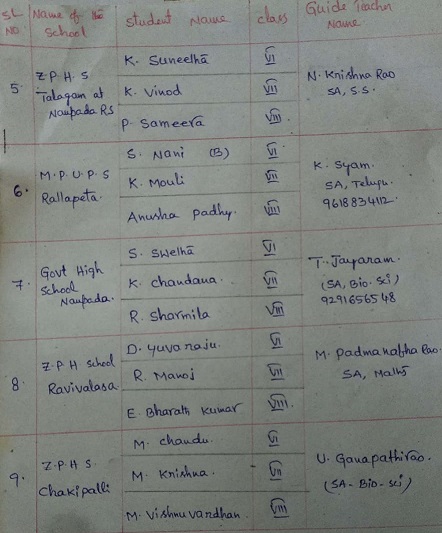 SL NO Name of the School Student Name class Guide Teacher Name
5. Z.P.H.S Talagam at Naupada RS
K. Suneetha VI
K. Vinod VII
P. Sameera VIII
N. Krishna Rao
SA, S.S.
6. M.P.U.P.S Rallapeta
S. Nani (B) VI
K. Mouli VII
Anusha Padhy. VIII
K. Syam.
SA, Telugu.
9618834112.
7. Govt High School Naupada.
S. Swetha VI
K. Chandana VII
R. Sharmila VIII
T. Jayaram.
(SA, Bio-Sci)
9291656548
8 Z.P.H School Ravivalasa
D. Yuvaraju. VI
R. Manoj VII
E. Bharath Kumar VIII.
M. Padmanabha Rao.
SA, Maths
9. Z.P.H.S. Chakipalli
M. Chandu. VI
M. Krishna. VII
M. Vishnuvardhan. VIII
U. Ganapathirao.
(SA-Bio-Sci)